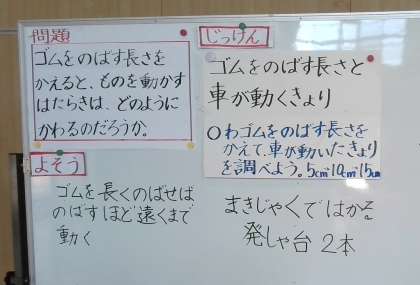 問題
ゴムをのばす長さを
かえると、ものを動かす
はたらきは、どのように
かわるのだろうか。
よそう
ゴムを長くのばせば
のばすほど遠くまで
動く
じっけん
ゴムをのばす長さと
車が動くきょり
○わゴムをのばす長さを
かえて、車が動いたきょり
を調べよう。5cm・10cm・15cm
まきじゃくではかる
発しゃ台 2本